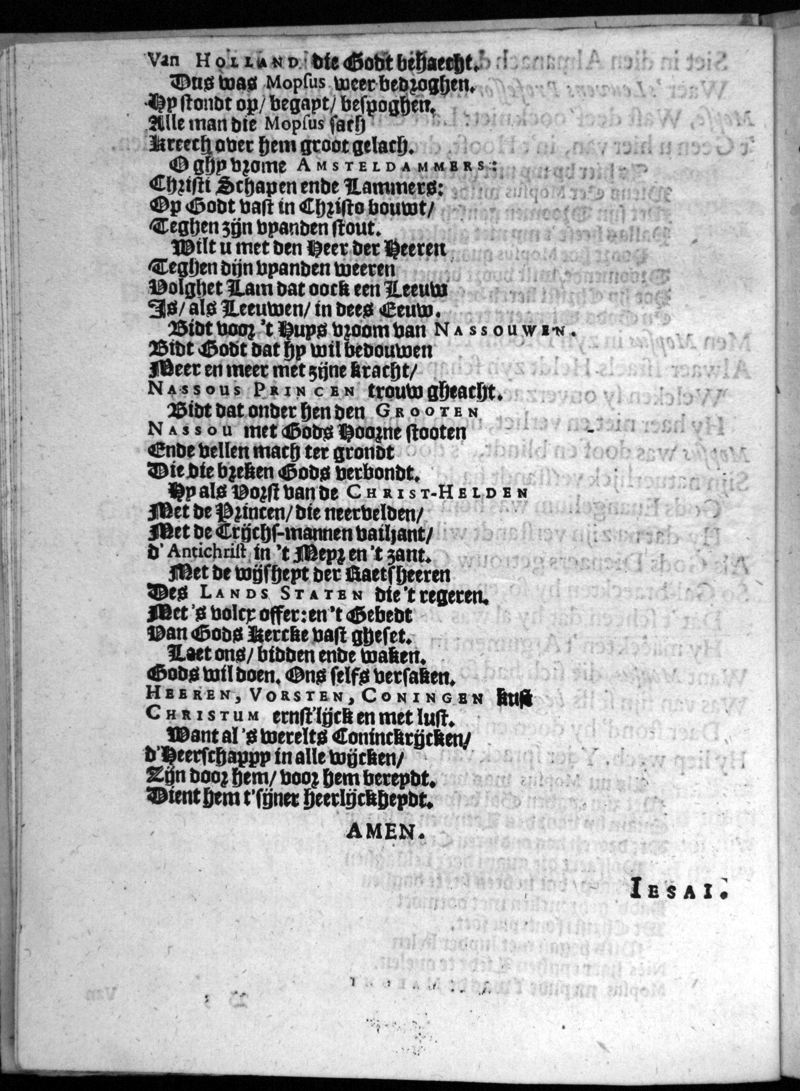 Van HOLLAND die Godt behaecht.
Dus was Mopsus weer bedroghen.
Hy stondt op/ begapt/ bespoghen.
Alle man die Mopsus sach
Kreech over hem groot gelach.
O ghy vrome AMSTELDAMMERS:
Christi Schapen ende Lammers:
Op Godt vast in Christo bouwt/
Teghen zijn vyanden stout.
Wilt u met den Heer der Heeren
Teghen dijn vyanden weeren
Volghet Lam dat oock een Leeuw
Is/ als Leeuwen/ in dees Eeuw.
Bidt voor 't Huys vroom van NASSOUWEN.
Bidt Godt dat hy wil bedouwen
Meer en meer met zijne kracht/
NASSOUS PRINCEN trouw gheacht.
Bidt dat onder hen den GROOTEN
NASSOU met Gods Hoorne stooten
Ende vellen mach ter grondt
Die die breken Gods verbondt.
Hy als Vorst van de CHRIST-HELDEN
Met de Princen/ die neervelden/
Met de Crijchs-mannen vailjant/
d'Antichrist in 't Meyr en 't zant.
Met de wijsheyt der Raetsheeren
Des LANDS STATEN die 't regeren.
Met 's volcx offer: en 't Gebedt
Van Gods kercke vast gheset.
Laet ons/ bidden ende waken.
Gods wil doen. Ons selfs versaken.
HEEREN, VORSTEN, CONINGEN kust
CHRISTUM ernst'lijck en met lust.
Want al 's werelts Coninckrijcken/
d'Heerschappy in alle wijcken/
Zijn door hem/ voor hem bereydt.
Dient hem t'sijner heerlijckheydt.
AMEN.
IESAI.